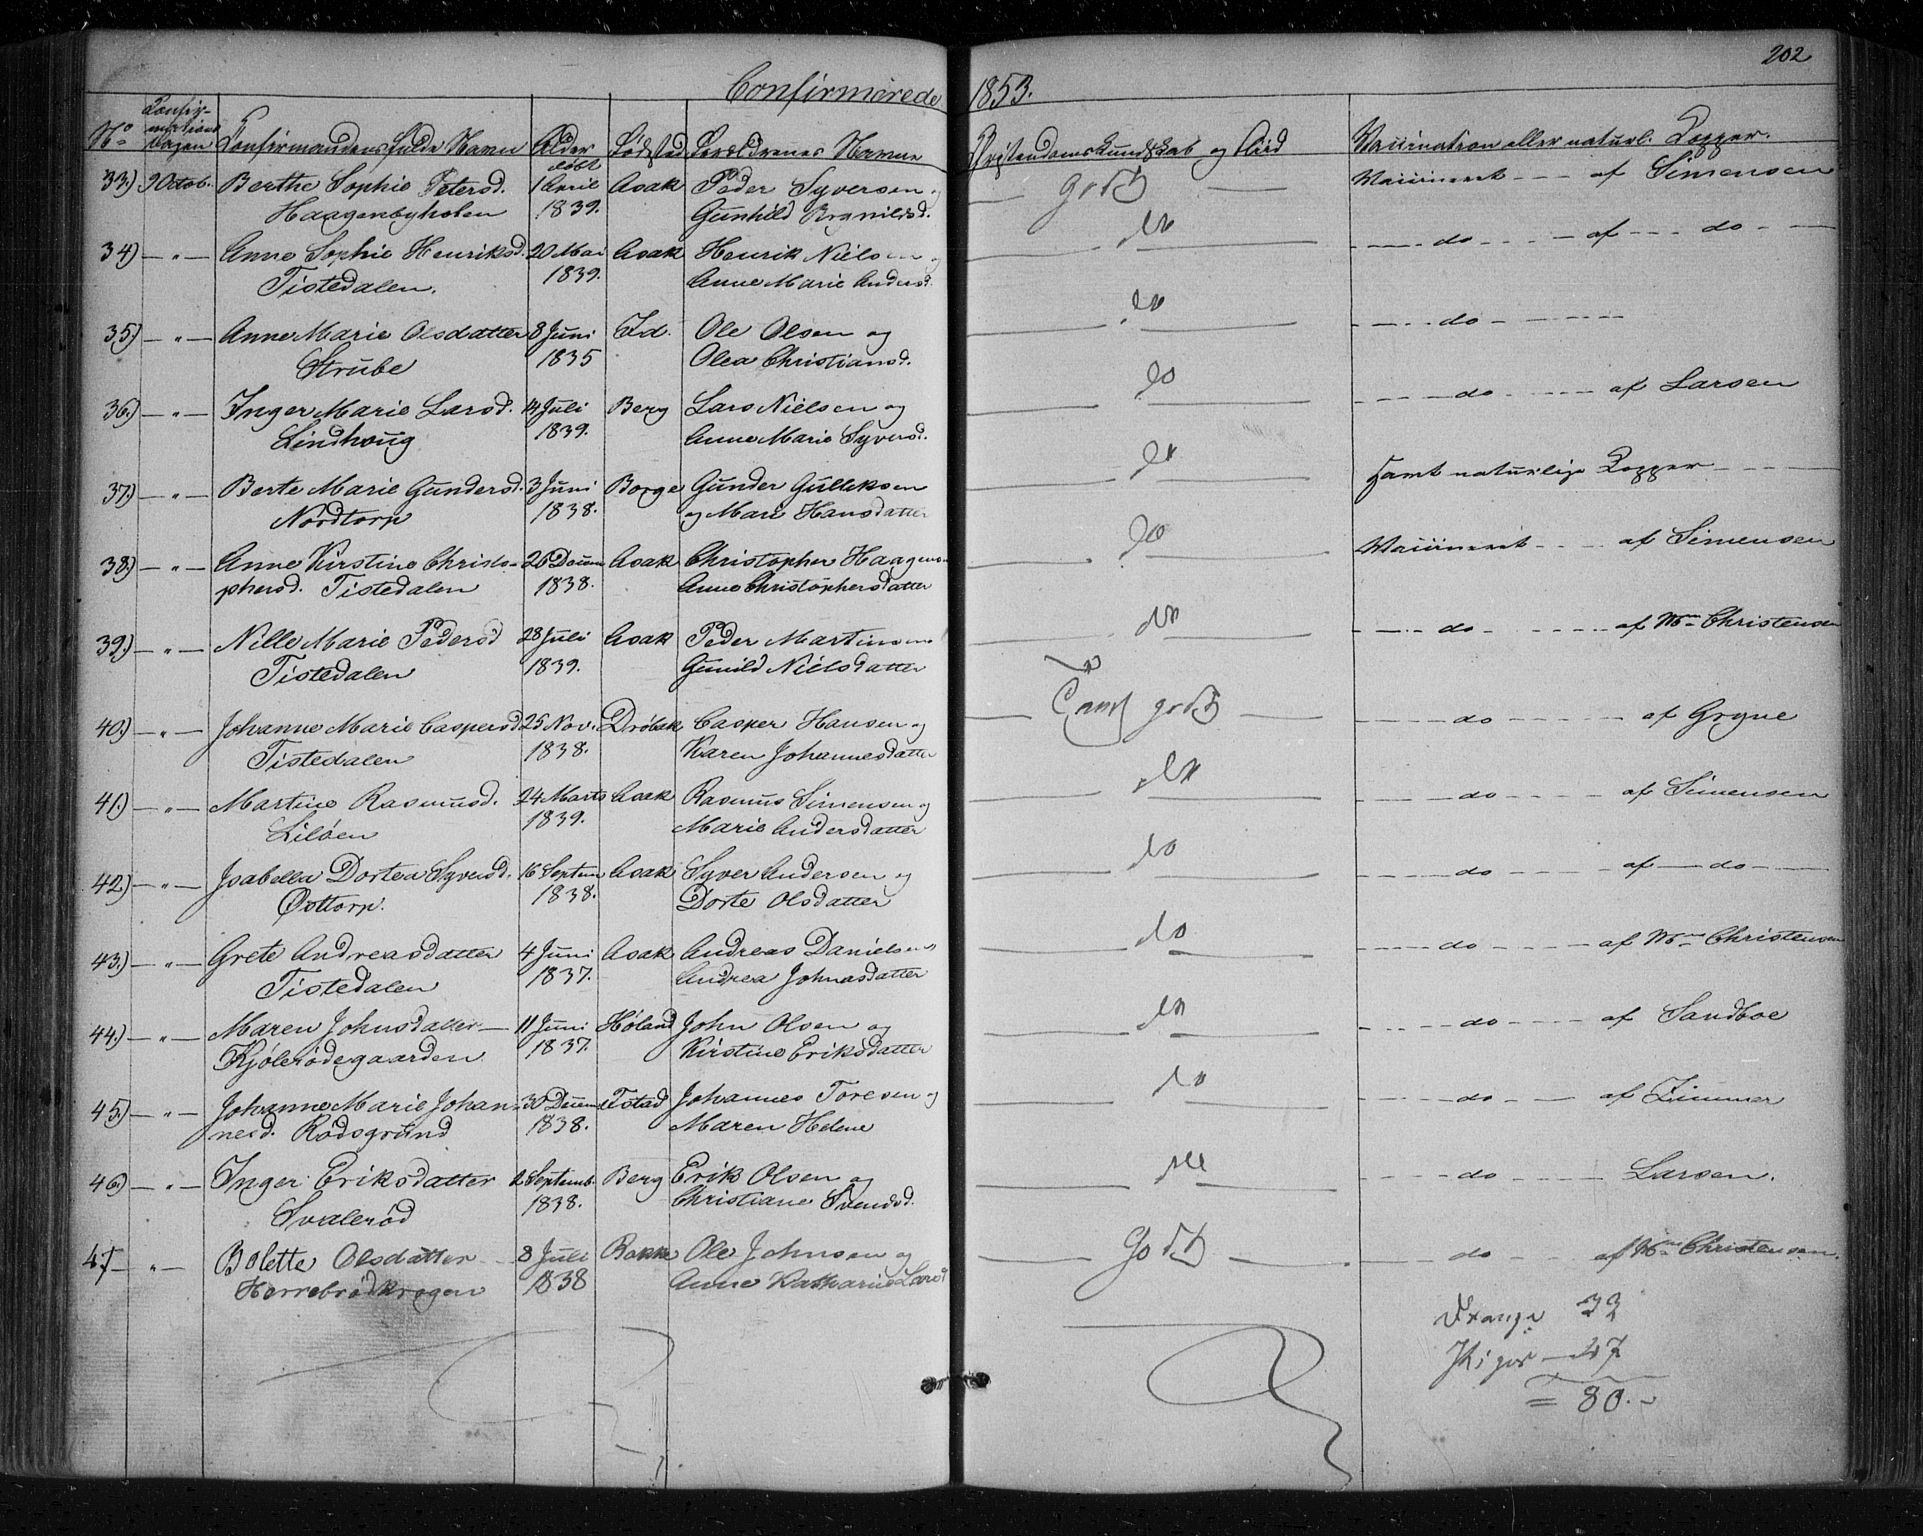 202
Confirmerede 1853.
No Confirmations Dagen Confirmandens fulde Navn Alder Fødested Forældrenes Navne Christendomskundskab og Flid Vaccination eller naturl. Kopper.
født
33.) 9 Octob. Berthe Sophie Petersd. 1 April Asak Peder Syversen og Godt Vaccineret af Simensen
Haagenbyholen 1839. Gunhild
34.) — " — Anne Sophie Henriksd. 20 Mai Asak Henrik Nielsen og do do af do
Tistedalen. 1839. Anne Marie Andersd.
35.) — " — Anne Marie Olsdatter 8 Juni Id. Ole Olsen og do do
Strube 1835 Olea Christiansd.
36.) — " — Inger Marie Larsd. 14 Juli Berg Lars Nielsen og do do af Larsen
Lindhoug 1839. Anne Marie Syversd.
37.) — " — Berte Marie Gundersd. 3 Juni Borge Gunder Gulleksen do havt naturlige Kopper
Nordtorp 1838. og Mari Hansdatter
38.) — " — Anne Kirstine Christo- 26 Decem Asak Christopher Haagensen do Vaccineret af Simensen
phersd. Tistedalen 1838. Anne Christophersdatter
39.) — " — Nille Marie Pedersd 28 Juli Asak Peder Martinsen do do af Christensen
Tistedalen 1839. Gunild Nielsdatter
40.) — " — Johanne Marie Caspersd. 25 Nov. Drøbak Casper Hansen og godt do af Gryne
Tistedalen 1838. Karen Johannesdatter
41.) — " — Martine Rasmusd. 24 Marts Asak Rasmus Simensen og do do af Simensen
Liløen 1839. Marie Andersdatter
42.) — " — Isabella Dortea Syversd. 16 Septem Asak Syver Andersen og do do af do
Østtorp. 1838. Dorte Olsdatter
43.) — " — Grete Andreasdatter 4 Juni Asak Andreas Danielsen do do af Christensen
Tistedalen 1837. Andrea Johnasdatter
44.) — " — Maren Johnsdatter 11 Juni Høland John Olsen og do do af Sandboe
Kjølerødegaarden 1837. Kirstine Eriksdatter
45.) — " — Johanne Marie Johan- 30 Decem Johannes Toresen og do do af Zimmer
nesd. Rødsgrund 1838. Maren Helene
46.) — " — Inger Eriksdatter 2 Septemb. Berg Erik Olsen og do do Larsen.
Svalerød 1838. Christiane Svendsd.
47 — " — Bolette Olsdatter 8 Juli Rakke Ole Johnsen og Godt do af Christensen.
Herrebrødkrogen 1838 Anne Katharine Larsd
Drenge 33
Piger — 47
= 80.